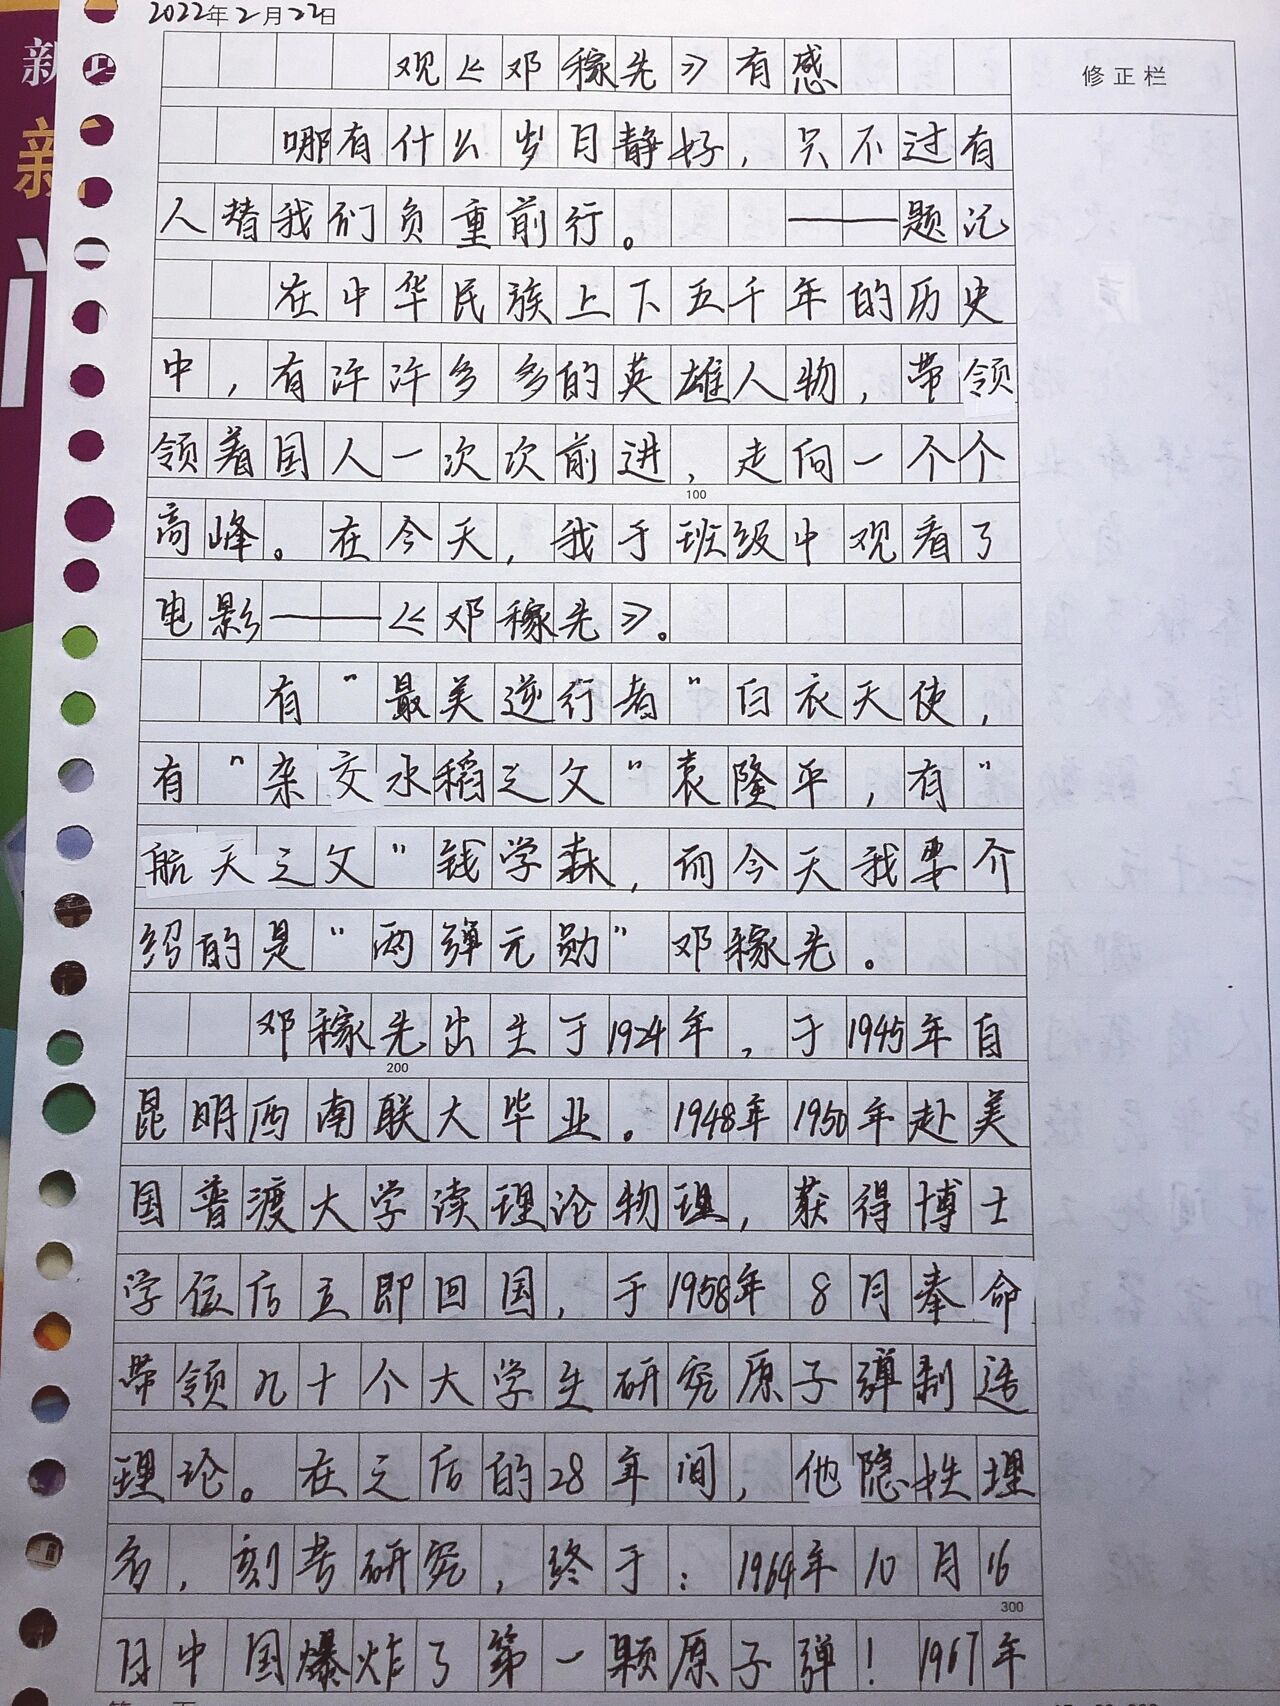 2022年2月22日
新
新
观《邓稼先》有感
修正栏
哪有什么岁月静好，只不过有
人替我们负重前行。——题记
在中华民族上下五千年的历史
中，有许许多多的英雄人物，带领
领着国人一次次前进，走向一个个
100
高峰。在今天，我于班级中观看了
电影——《邓稼先》。
有“最美逆行者”白衣天使，
有“杂交水稻之父”袁隆平，有“
航天之父”钱学森，而今天我要介
绍的是“两弹元勋”邓稼先。
邓稼先出生于1924年，于1945年自
200
昆明西南联大毕业。1948年1950年赴美
国普渡大学读理论物理，获得博士
学位后立即回国，于1958年8月奉命
带领几十个大学生研究原子弹制造
理论。在之后的28年间，他隐姓埋
名，刻苦研究，终于：1964年10月16
300
日中国爆炸了第一颗原子弹！1967年